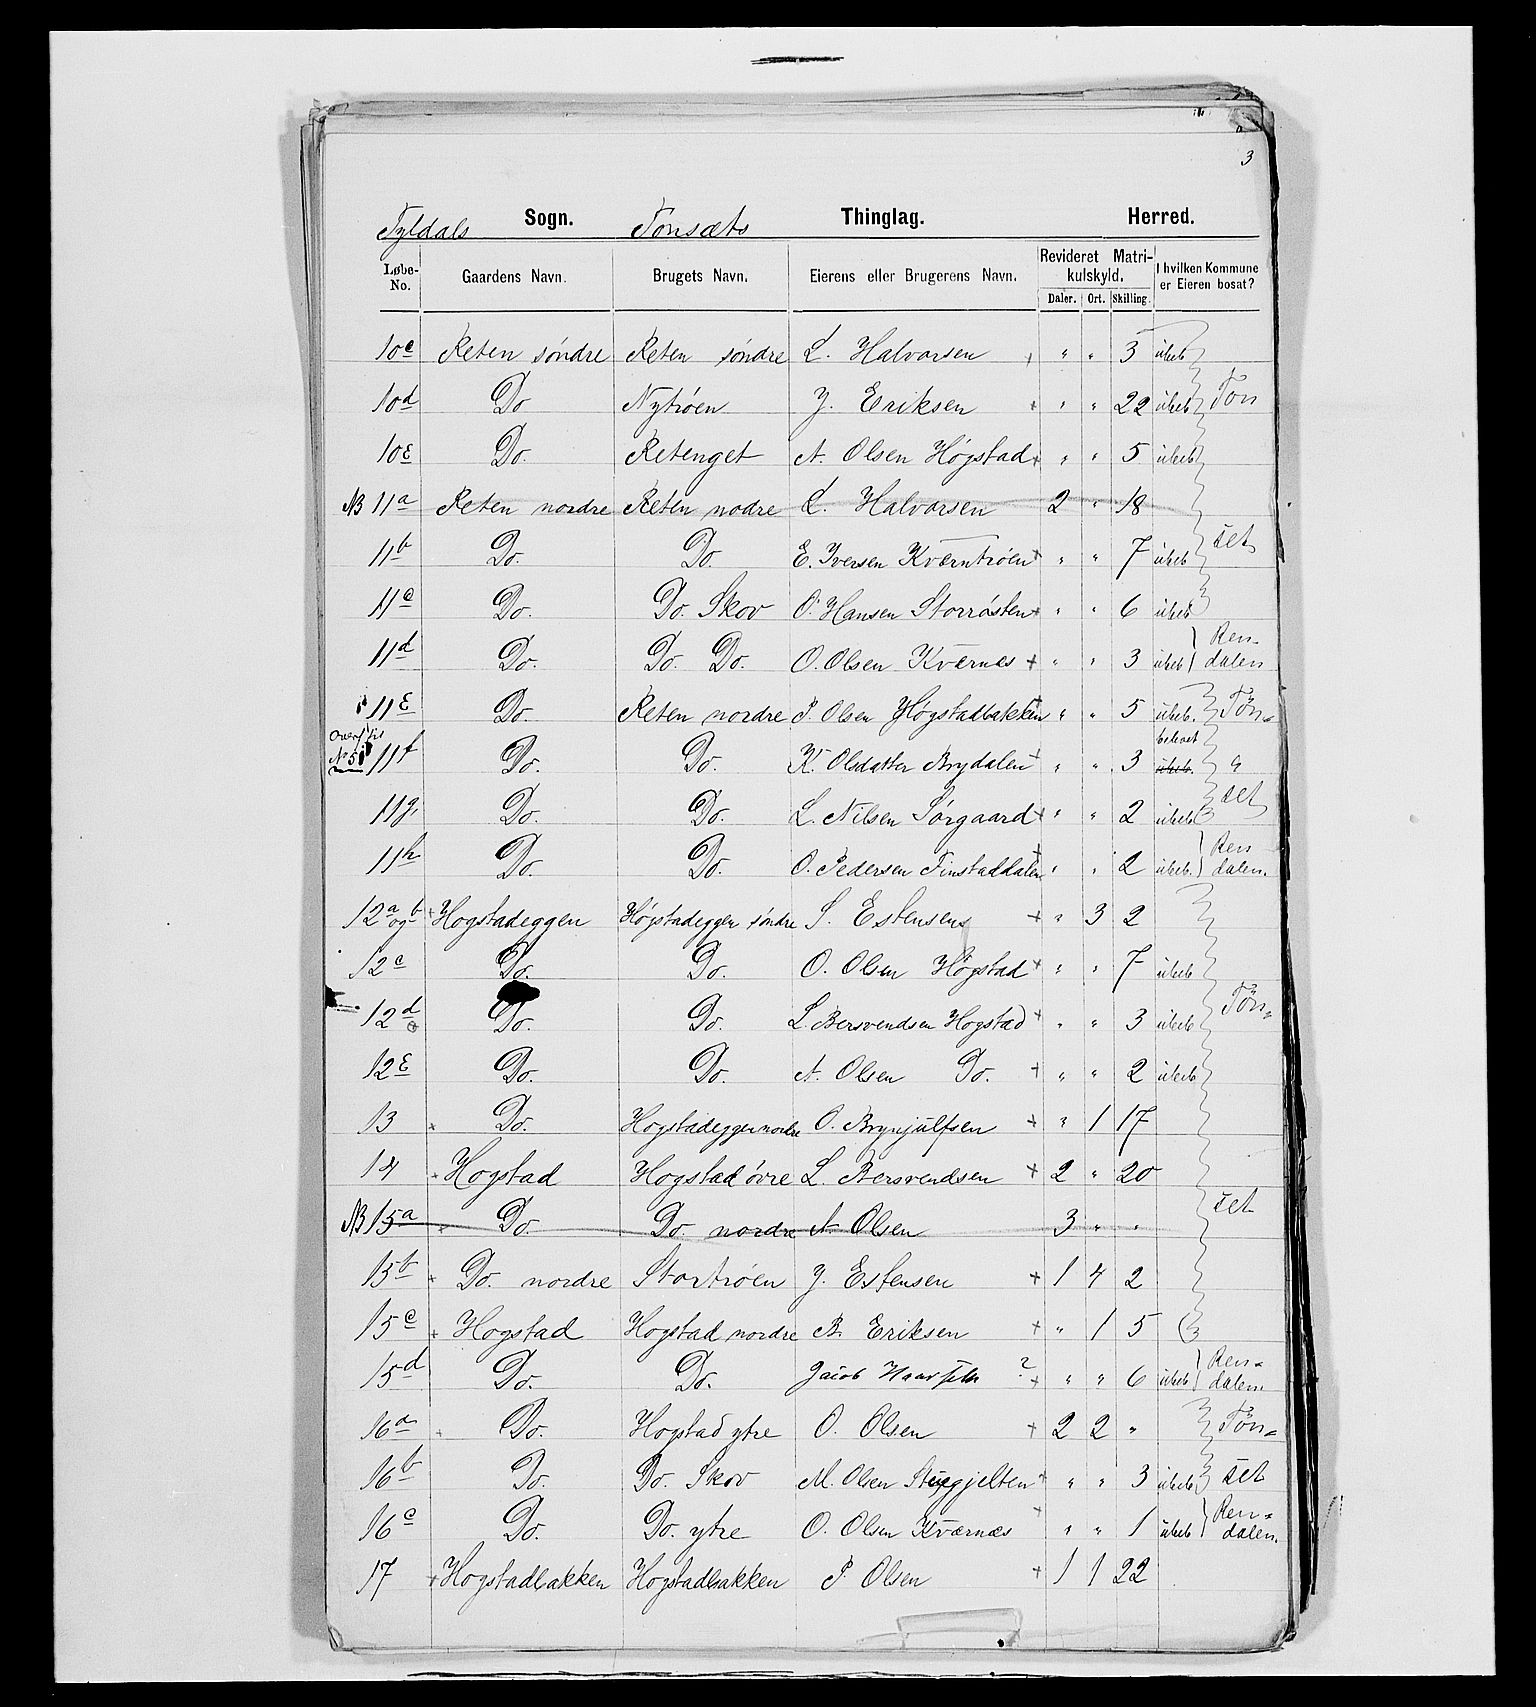 3
Tyldals Sogn. Tönsæts Thinglag. Herred.
Løbe-No. Gaardens Navn. Brugets Navn. Eierens eller Brugerens Navn. Revideret Matrikulskyld. Daler. Ort. Skilling. I hvilken Kommune er Eieren bosat?
10c Reten söndre Reten söndre L. Halvorsen + " " 3 ubeb
10d Do Nytröen J. Eriksen + " " 22 ubeb Tön
10e Do. Retenget A. Olsen Högstad + " " 5 ubeb
NB 11a Reten nordre Reten nodre L. Halvorsen 2 " 18
11b Do. Do. E. Iversen Kværntröen + " " 7 ubeb set
11c Do. Do. Skov O. Hansen Storrösten + " " 6 ubeb
11d Do. Do. Do. O. Olsen Kværnes + " " 3 ubeb Ren-dalen
11e Do. Reten nordre P. Olsen Högstadbakken + " " 5 ubeb. Tön-
No 5 11f Do. Do. K. Olsdatter Brydalen + " " 3 beboet ubeb. "
11g. Do. Do. L. Nilsen Sörgaard + " " 2 ubeb set
11h Do. Do. O. Pedersen Finstaddalen + " " 2 ubeb. Ren dalen.
12a og b + Hogstadeggen Högstadeggen söndre S. Estensens + " 3 2
12c Do. Do. O. Olsen Högstad + " " 7 ubeb
12d Do. Do. L. Bersvendsen Hogstad + " " 3 ubeb Tön-
12e Do. Do. A. Olsen Do. + " " 2 ubeb
13 + Do. Hogstadeggen nordre O. Brynjulfsen + " 1 17
14 + Hogstad Hogstad övre L. Bersvendsen + 2 " 20
NB 15a + Do. Do. nordre A. Olsen 3 " " set
15b + Do. nordre Stortröen J. Estensen + 1 4 2
15c + Hogstad Hogstad nordre B. Eriksen + " 1 5
15d Do. Do. Jacob ? + " " 6 ubeb Ren-dalen.
16a + Do. Hogstad ytre O. Olsen + 2 2 " Tön-
16b Do. Do. Skov M. Olsen + " " 3 ubeb set
16c Do. Do. ytre O. Olsen Kværnæs + " " 1 ubeb Ren-dalen.
17 + Hogstadbakken Hogstadbakken P. Olsen + 1 1 22